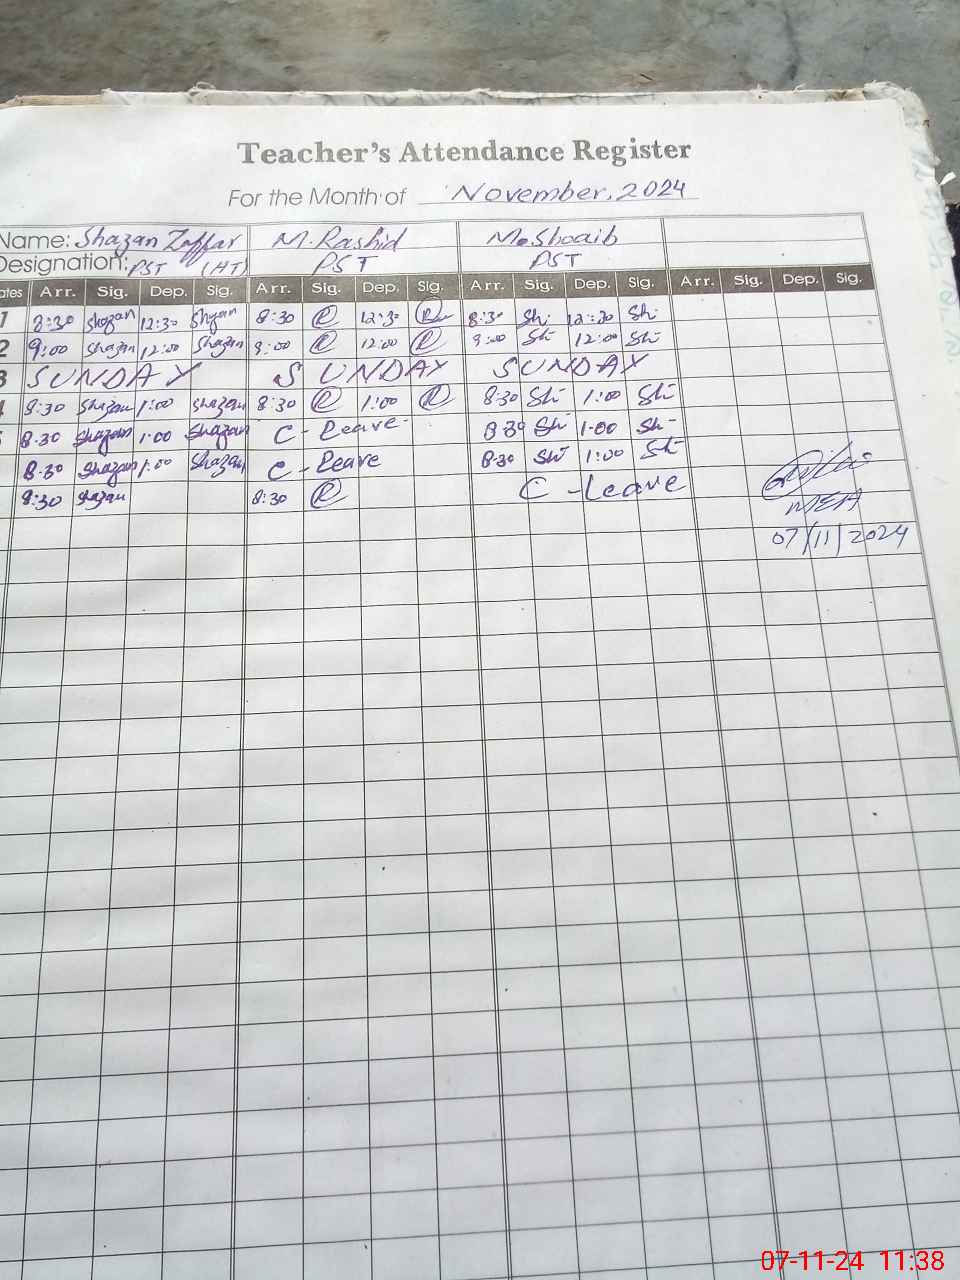 Teacher's Attendance Register
For the Month of November, 2024
Name: Shazan Zaffar M. Rashid M. Shoaib
Designation: PST (HT) PST PST
ates Arr. Sig. Dep. Sig. Arr. Sig. Dep. Sig. Arr. Sig. Dep. Sig. Arr. Sig. Dep. Sig.
1 8:30 Shazan 12:30 Shazan 8:30 R 12:30 R 8:30 Sh 12:30 Sh
2 9:00 Shazan 12:00 Shazan 9:00 R 12:00 R 9:00 Sh 12:00 Sh
3 SUNDAY SUNDAY SUNDAY
4 8:30 Shazan 1:00 Shazan 8:30 R 1:00 R 8:30 Sh 1:00 Sh
5 8:30 Shazan 1:00 Shazan C - Leave 8:30 Sh 1:00 Sh
8:30 Shazan 1:00 Shazan C - Leave 8:30 Sh 1:00 Sh
8:30 Shazan 8:30 R C - Leave
MEA
07/11/2024
07-11-24 11:38